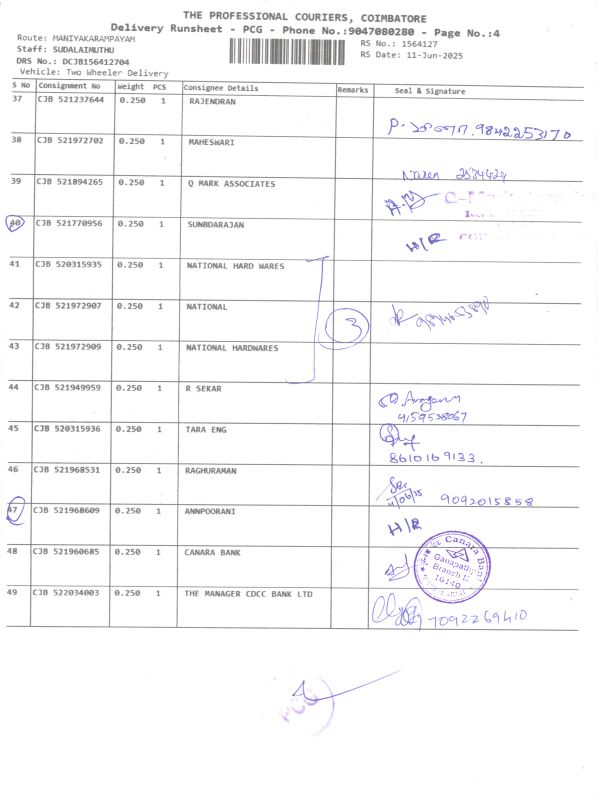 THE PROFESSIONAL COURIERS, COIMBATORE
Delivery Runsheet - PCG - Phone No.:9047080280 - Page No.:4
Route: MANIYAKARAMPAYAM
RS No.: 1564127
Staff: SUDALAIMUTHU
RS Date: 11-Jun-2025
DRS No.: DCJB156412704
Vehicle: Two Wheeler Delivery
S No Consignment No Weight PCS Consignee Details Remarks Seal & Signature
37 CJB 521237644 0.250 1 RAJENDRAN
9842253170
38 CJB 521972702 0.250 1 MAHESWARI
39 CJB 521894265 0.250 1 Q MARK ASSOCIATES
40 CJB 521770956 0.250 1 SUNBDARAJAN
H/R
41 CJB 520315935 0.250 1 NATIONAL HARD WARES
42 CJB 521972907 0.250 1 NATIONAL
3
43 CJB 521972909 0.250 1 NATIONAL HARDWARES
44 CJB 521949959 0.250 1 R SEKAR
9159538067
45 CJB 520315936 0.250 1 TARA ENG
8610169133.
46 CJB 521968531 0.250 1 RAGHURAMAN
11/06/25 9092015858
47 CJB 521968609 0.250 1 ANNPOORANI
H/R
48 CJB 521960685 0.250 1 CANARA BANK
Canara Bank
Ganapathy
Branch
49 CJB 522034003 0.250 1 THE MANAGER CDCC BANK LTD
7092269410
PCG